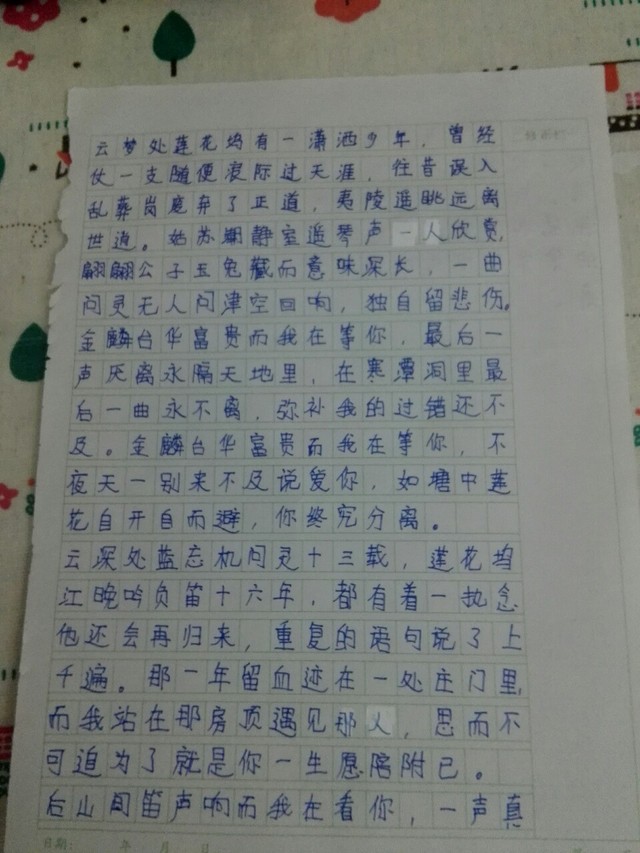 云梦处莲花坞有一潇洒少年，曾经
仗一支随便浪际过天涯，往昔误入
乱葬岗庭弃了正道，夷陵遥眺远离
世逍。姑苏期静室遥琴声一人欣赏，
翩翩公子玉兔藏而意味深长，一曲
问灵无人问津空回响，独自留悲伤。
金麟台华富贵而我在等你，最后一
声厌离永隔天地里，在寒潭洞里最
后一曲永不离，弥补我的过错还不
及。金麟台华富贵而我在等你，不
夜天一别来不及说爱你，如塘中莲
花自开自而避，你终究分离。
云深处蓝忘机问灵十三载，莲花坞
江晚吟负笛十六年，都有着一执念
他还会再归来，重复的语句说了上
千遍。那一年留血迹在一处庄门里，
而我站在那房顶遇见那人，思而不
可追为了就是你一生愿陪附已。
后山间笛声响而我在看你，一声真
日期： 年 月 日